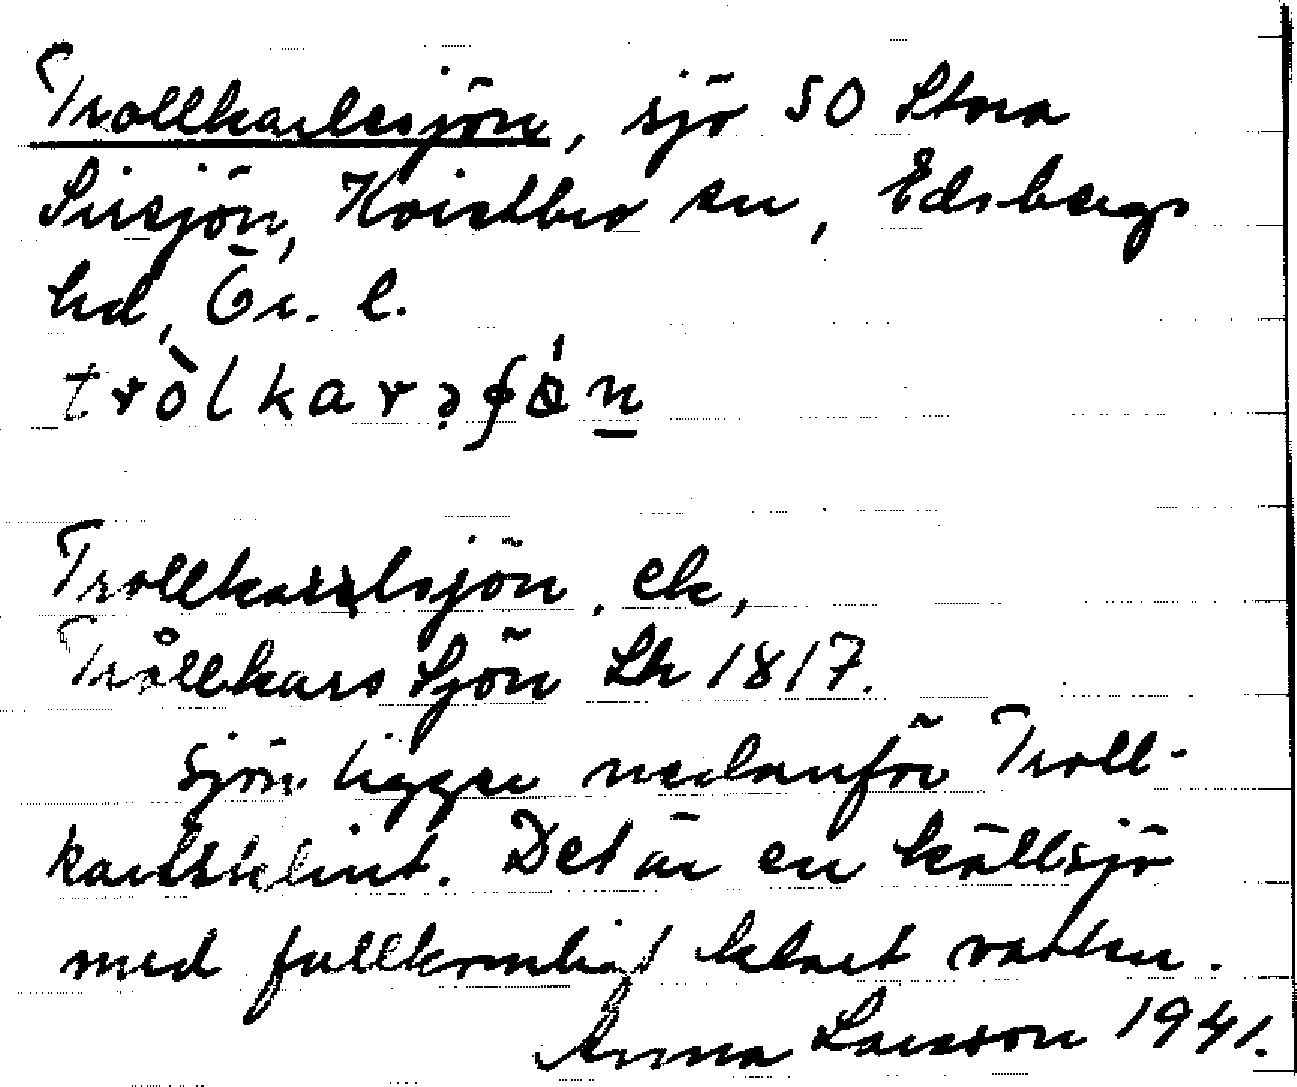 Trollkarlssjön, sjö SO Stora
Sirsjön, Kvistbro sn, Edsbergs
hd, Ör. l.
Trollkarlsjön, ek,
Trållkars Sjön Lk 1817.
Sjön ligger nedanför Troll-
karlsklint. Det är en källsjö
med fullkomligt klart vatten.
Anna Larsson 1941.